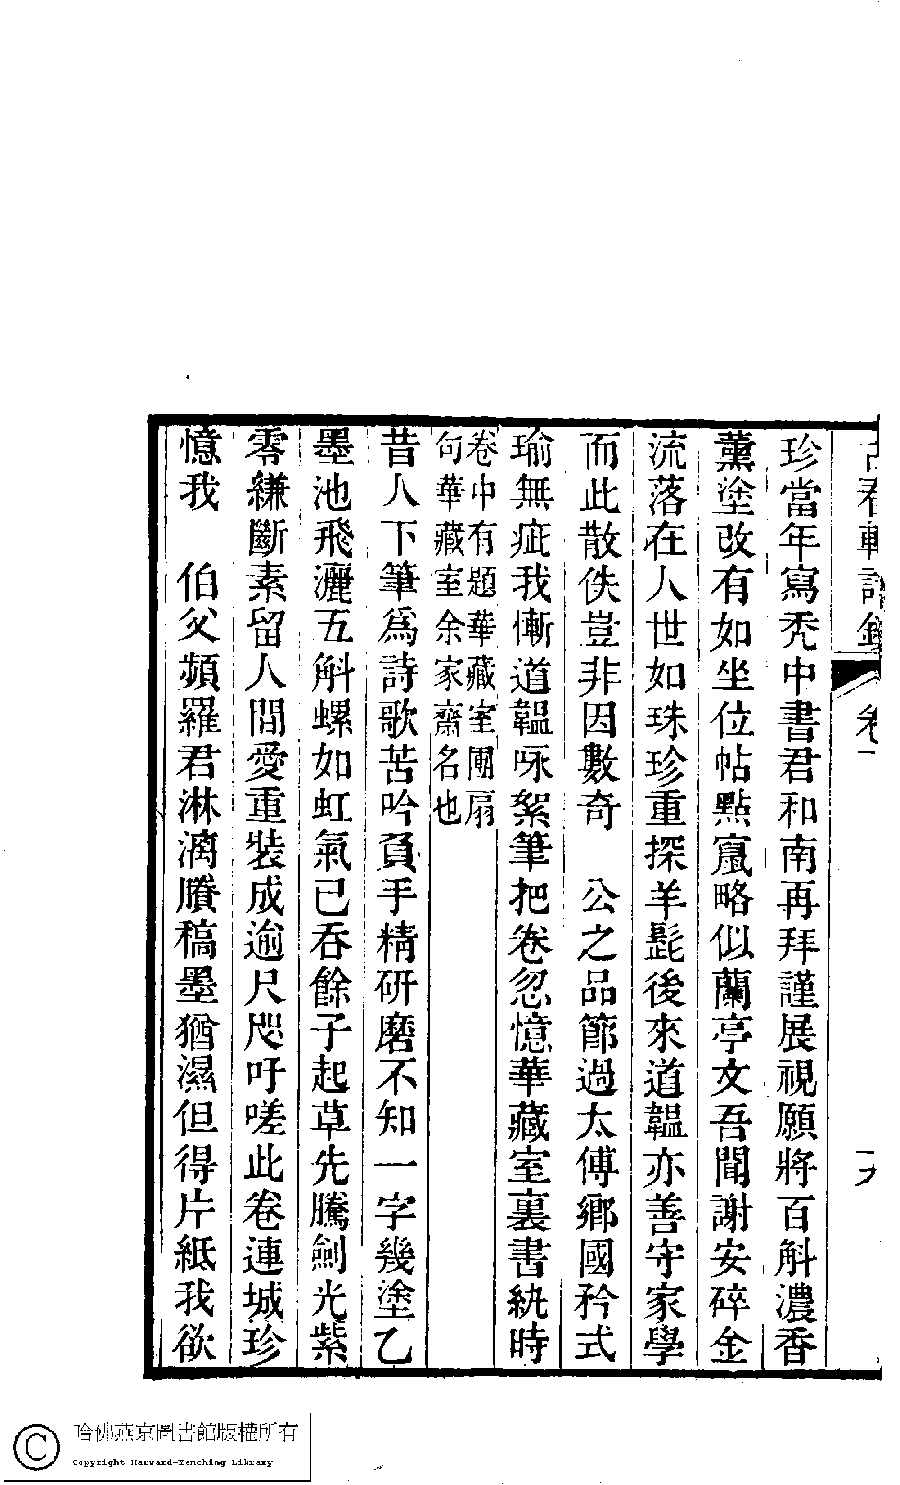 古春軒詩鈔
卷一
十六
珍當年寫禿中書君和南再拜謹展視願將百斛濃香
薰塗改有如坐位帖點竄略似蘭亭文吾聞謝安碎金
流落在人世如珠珍重探羊髭後來道韞亦善守家學
而此散佚豈非因數奇　公之品節過太傅鄉國矜式
瑜無疵我慚道韞咏絮筆把卷忽憶華藏室裏書紈時
卷中有題華藏室團扇
句華藏室余家齋名也
昔人下筆爲詩歌苦吟負手精研磨不知一字幾塗乙
墨池飛灑五斛螺如虹氣已吞餘子起草先騰劍光紫
零縑斷素留人間愛重裝成逾尺咫吁嗟此卷連城珍
憶我　伯父頻羅君淋漓賸稿墨猶濕但得片紙我欲
哈佛燕京圖書館版權所有
Copyright Harvard-Yenching Library